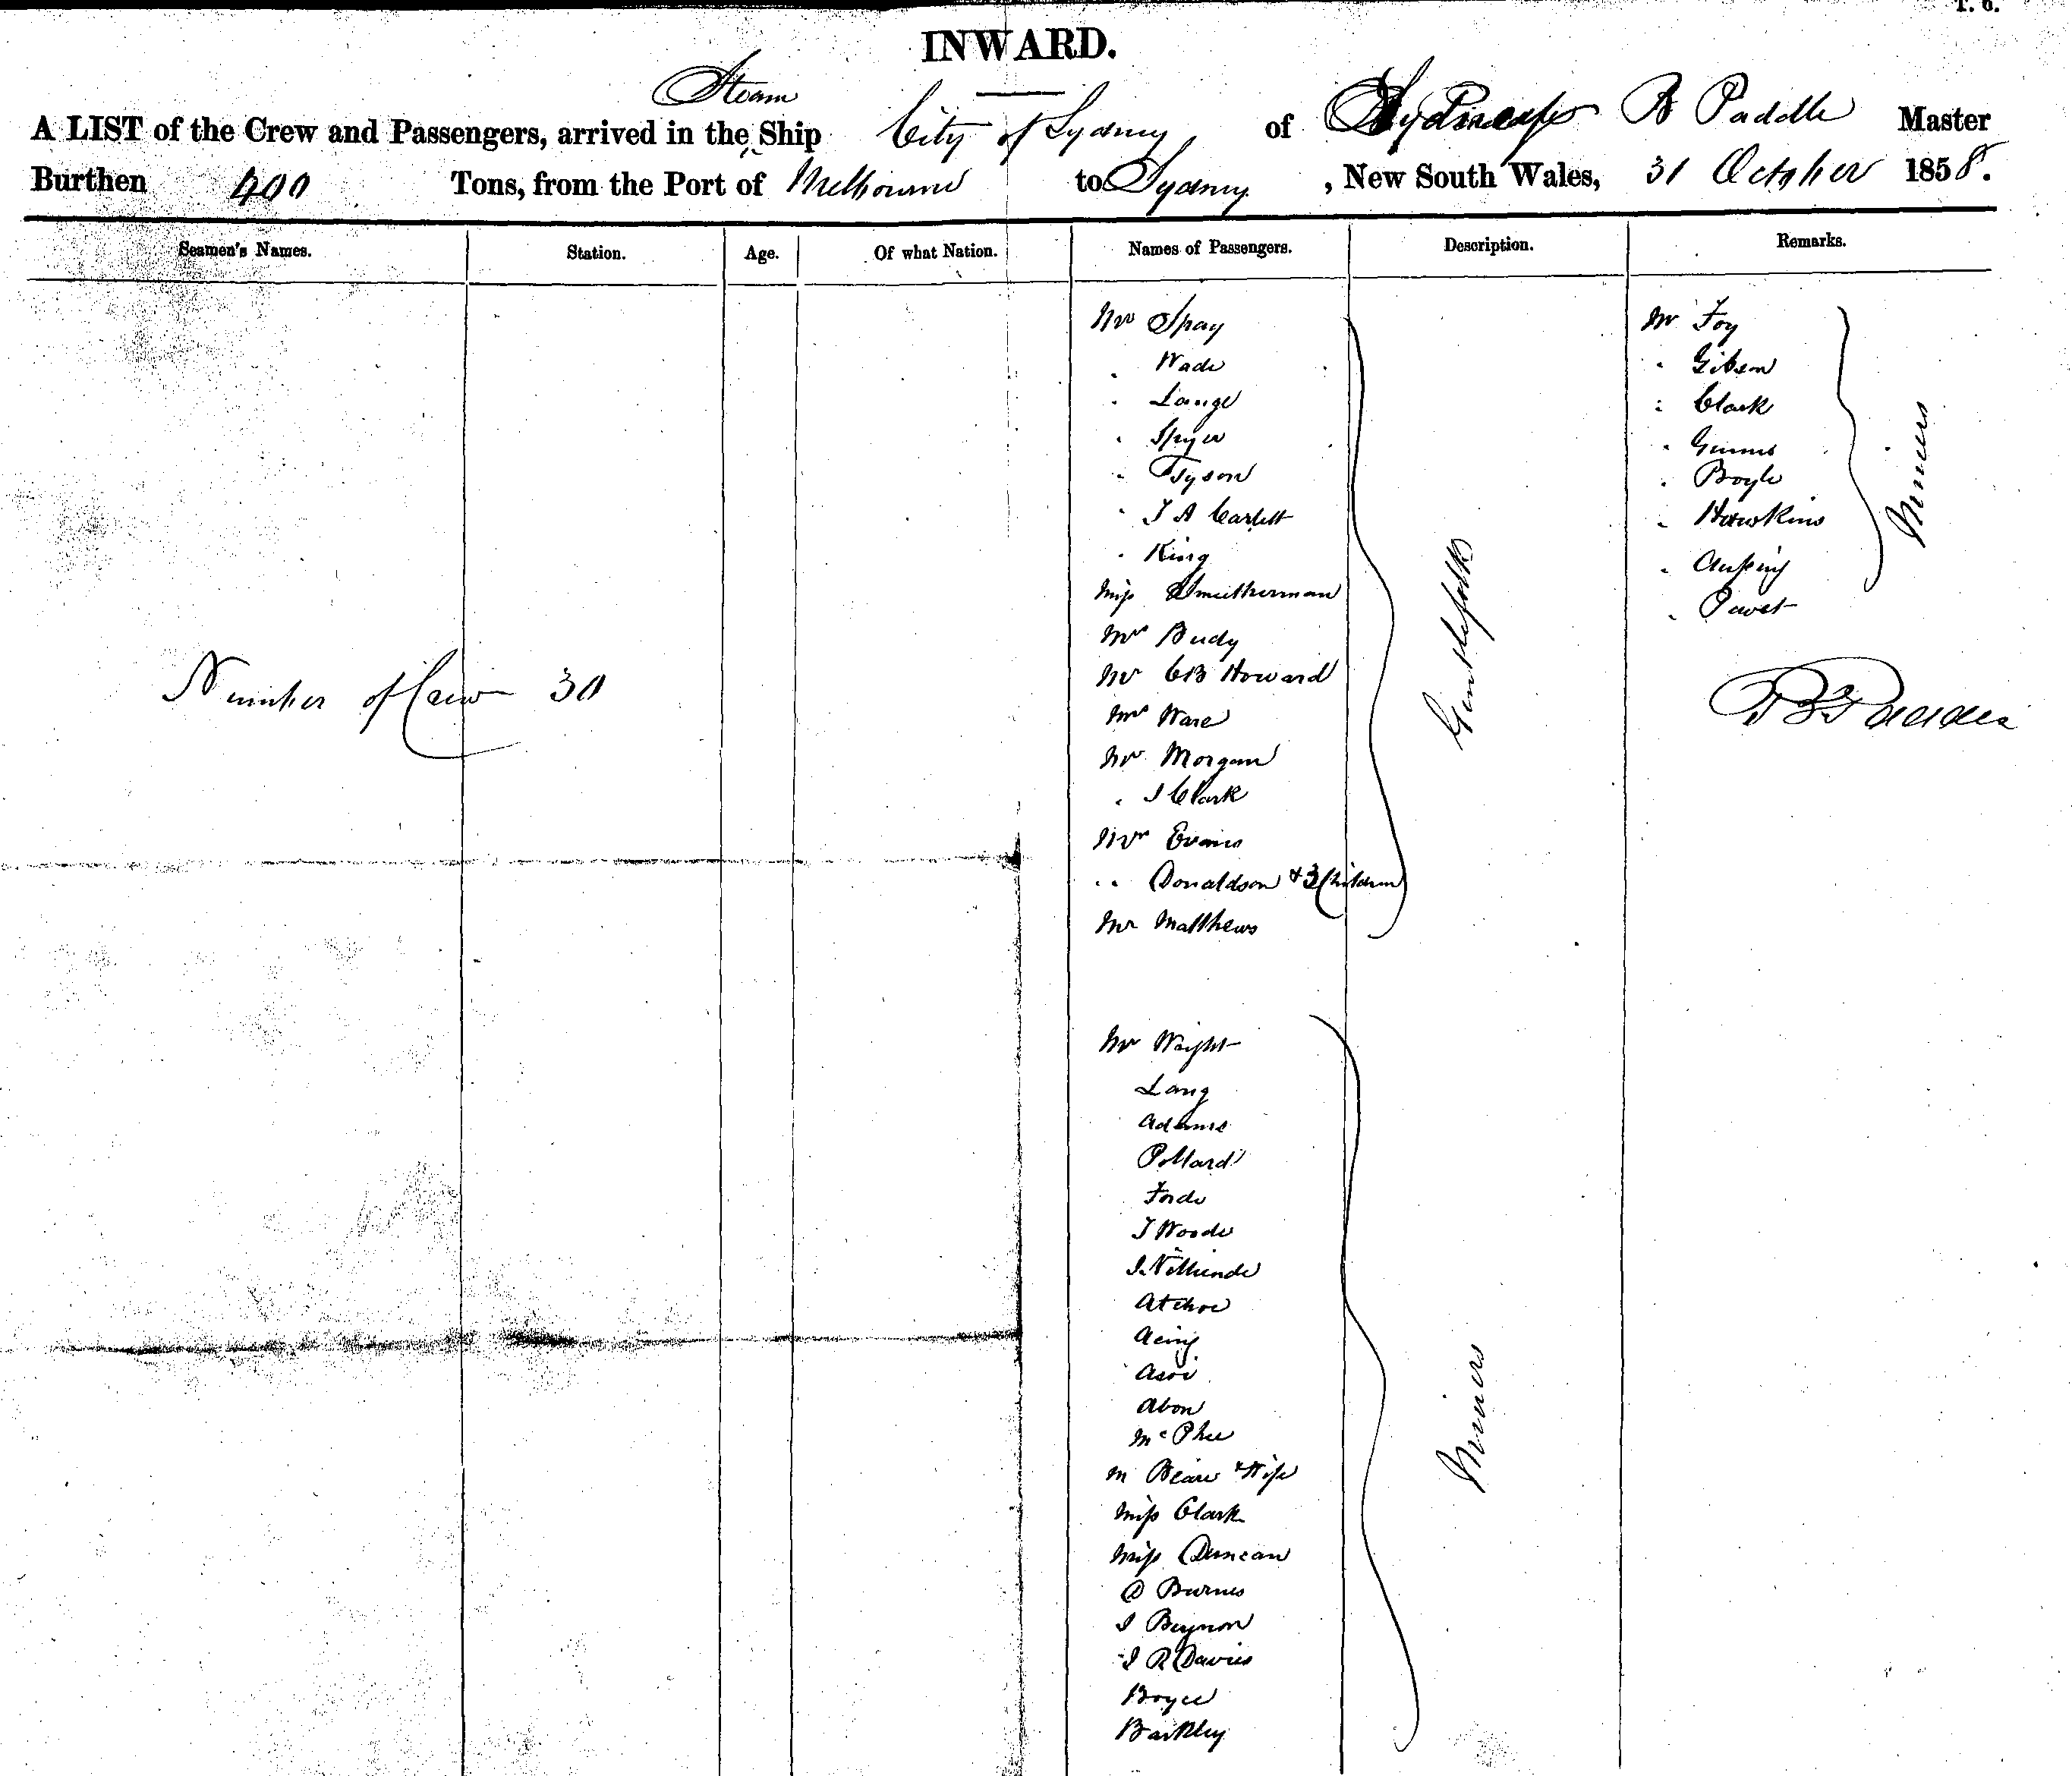 T. 6.
INWARD.
Steam
A LIST of the Crew and Passengers, arrived in the Ship City of Sydney of Sydney B Paddle Master
Burthen 400 Tons, from the Port of Melbourne to Sydney, New South Wales, 31 October 1858.
Seamen's Names. Station. Age. Of what Nation. Names of Passengers. Description. Remarks.
Number of Crew 30
Mr Spay
" Wade
" Lange
" Spyer
" Tyson
" J A Carlett
" King
Miss Smitherman
Mrs Budy
Mr C B Howard
Mrs Ware
Mr Morgan
" J Clark
Mrs Evans
" Donaldson + 3 Children
Mr Matthews
Gentlefolks
Mr Wright
Lang
Adams
Pollard
Forde
J Woode
Atchoe
Acing
Asoi
Abon
McPhee
M Blair & Wife
Miss Clark
Miss Duncan
D Burnes
J Beynon
J R Davies
Boyce
Barkley
Miners
Mr Foy
" Gibson
" Clark
"
" Boyle
" Hawkins
"
"
Miners